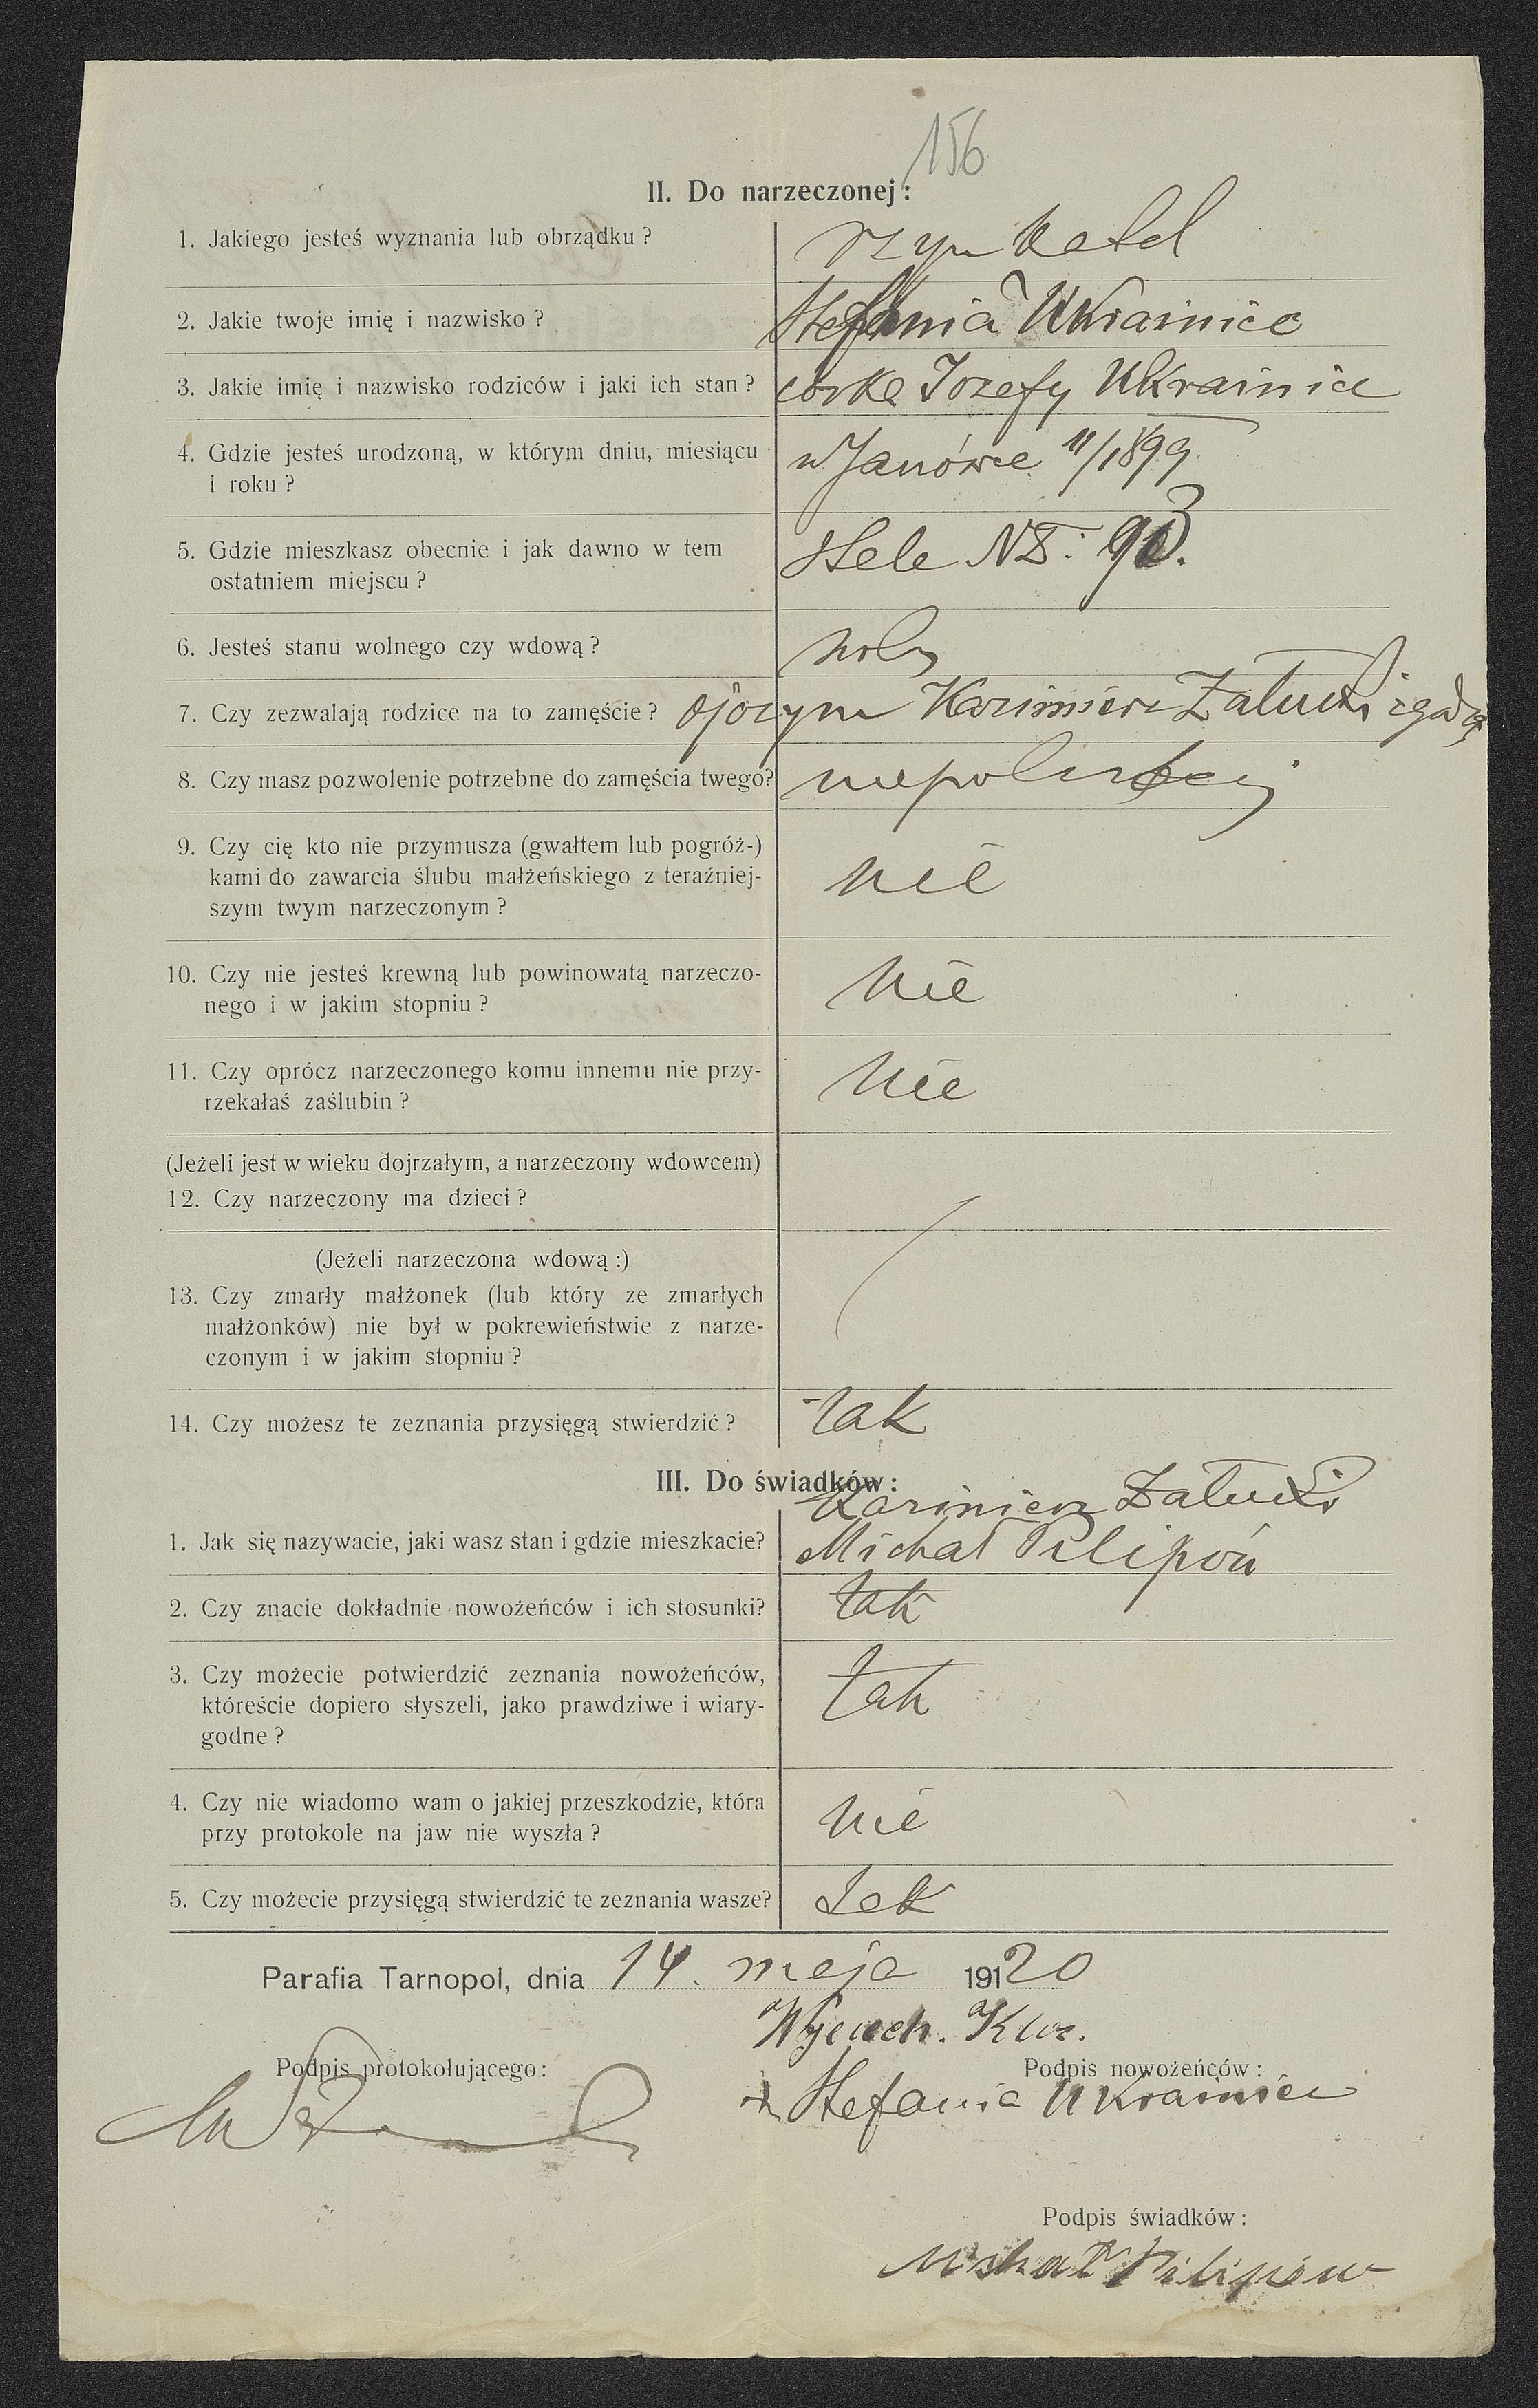 156
II. Do narzeczonej:
1. Jakiego jesteś wyznania lub obrządku?
rzym katol
2. Jakie twoje imię i nazwisko?
Stefania Ukrainiec
3. Jakie imię i nazwisko rodziców i jaki ich stan?
córka Józefy Ukrainiec
4. Gdzie jesteś urodzoną, w którym dniu, miesiącu
i roku?
w Janówce 11/1899
5. Gdzie mieszkasz obecnie i jak dawno w tem
ostatniem miejscu?
6. Jesteś stanu wolnego czy wdową?
wolny
7. Czy zezwalają rodzice na to zamęście?
ojczym Kazimierz Załucki
8. Czy masz pozwolenie potrzebne do zamęścia twego?
9. Czy cię kto nie przymusza (gwałtem lub pogróż-)
kami do zawarcia ślubu małżeńskiego z teraźniej-
szym twym narzeczonym?
nie
10. Czy nie jesteś krewną lub powinowatą narzeczo-
nego i w jakim stopniu?
nie
11. Czy oprócz narzeczonego komu innemu nie przy-
rzekałaś zaślubin?
nie
(Jeżeli jest w wieku dojrzałym, a narzeczony wdowcem)
12. Czy narzeczony ma dzieci?
(Jeżeli narzeczona wdową:)
13. Czy zmarły małżonek (lub który ze zmarłych
małżonków) nie był w pokrewieństwie z narze-
czonym i w jakim stopniu?
14. Czy możesz te zeznania przysięgą stwierdzić?
tak
III. Do świadków:
Kazimierz Załucki
1. Jak się nazywacie, jaki wasz stan i gdzie mieszkacie?
Michał Pilipów
2. Czy znacie dokładnie nowożeńców i ich stosunki?
tak
3. Czy możecie potwierdzić zeznania nowożeńców,
któreście dopiero słyszeli, jako prawdziwe i wiary-
godne?
tak
4. Czy nie wiadomo wam o jakiej przeszkodzie, która
przy protokole na jaw nie wyszła?
nie
5. Czy możecie przysięgą stwierdzić te zeznania wasze?
tak
Parafia Tarnopol, dnia 14. maja 19120
Podpis protokołującego:
Podpis nowożeńców:
Stefania Ukrainiec
Podpis świadków:
Michał Pilipów